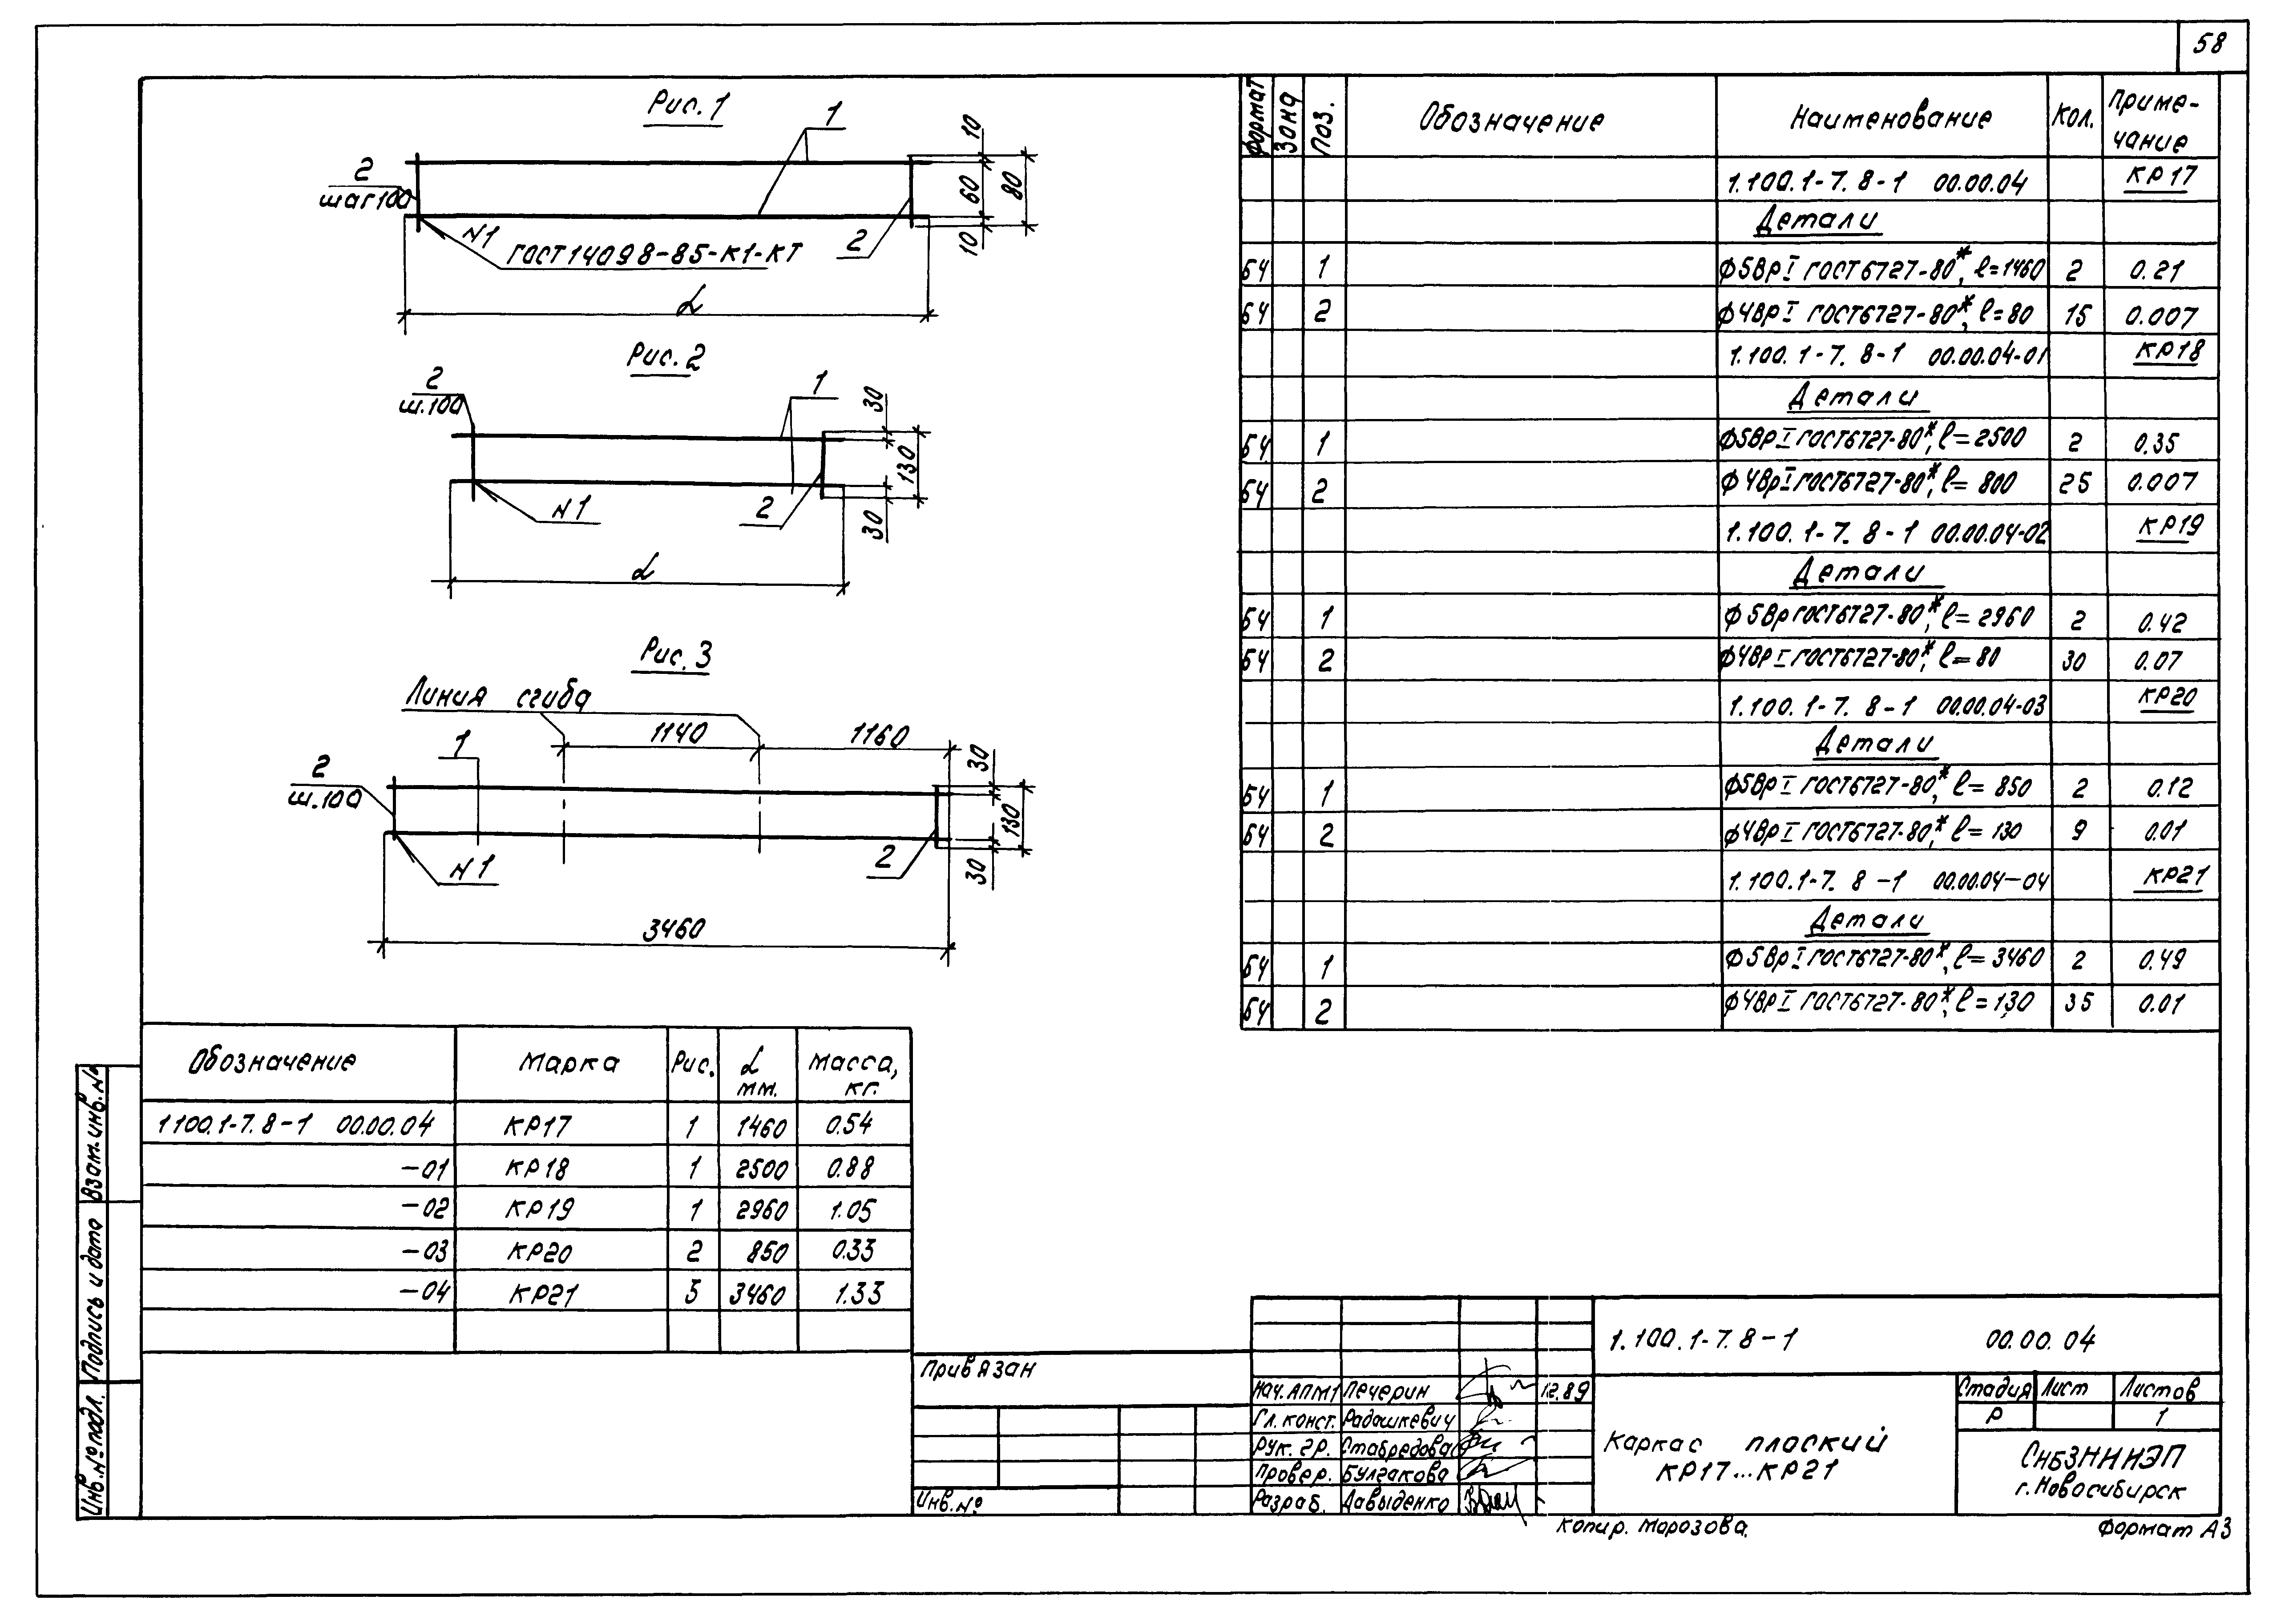 58
Рис. 1
1
2
шаг 100
N1
ГОСТ 14098-85-К1-КТ
2
10
60
80
10
L
Рис. 2
2
ш.100
1
30
130
30
N1
2
L
Рис. 3
Линия сгиба
1140
1160
1
2
ш.100
30
130
30
N1
2
3460
Формат Зона Поз. Обозначение Наименование Кол. Приме-
чание
1.100.1-7.8-1 00.00.04 КР17
Детали
БЧ 1 ф5ВрI ГОСТ6727-80*, l=1460 2 0.21
БЧ 2 ф4ВрI ГОСТ6727-80*, l=80 15 0.007
1.100.1-7.8-1 00.00.04-01 КР18
Детали
БЧ 1 ф5ВрI ГОСТ6727-80*, l=2500 2 0.35
БЧ 2 ф4ВрI ГОСТ6727-80*, l=800 25 0.007
1.100.1-7.8-1 00.00.04-02 КР19
Детали
БЧ 1 ф5Вр ГОСТ6727-80*, l=2960 2 0.42
БЧ 2 ф4ВрI ГОСТ6727-80*, l=80 30 0.07
1.100.1-7.8-1 00.00.04-03 КР20
Детали
БЧ 1 ф5ВрI ГОСТ6727-80*, l=850 2 0.12
БЧ 2 ф4ВрI ГОСТ6727-80*, l=130 9 0.01
1.100.1-7.8-1 00.00.04-04 КР21
Детали
БЧ 1 ф5ВрI ГОСТ6727-80*, l=3460 2 0.49
БЧ 2 ф4ВрI ГОСТ6727-80*, l=130 35 0.01
Обозначение Марка Рис. L мм. Масса, кг.
1100.1-7.8-1 00.00.04 КР17 1 1460 0.54
-01 КР18 1 2500 0.88
-02 КР19 1 2960 1.05
-03 КР20 2 850 0.33
-04 КР21 3 3460 1.33
Взам. инв. №
Подпись и дата
Инв. № подл.
Привязан
Инв. №
Нач. АПМ1 Печерин 12.89
Гл. конст. Радашкевич
Рук. гр. Стабредова
Провер. Булгакова
Разраб. Давыденко
1.100.1-7.8-1 00.00.04
Каркас плоский
КР17...КР21
Стадия Лист Листов
Р 1
СибЗНИИЭП
г. Новосибирск
Копир. Морозова.
Формат А3